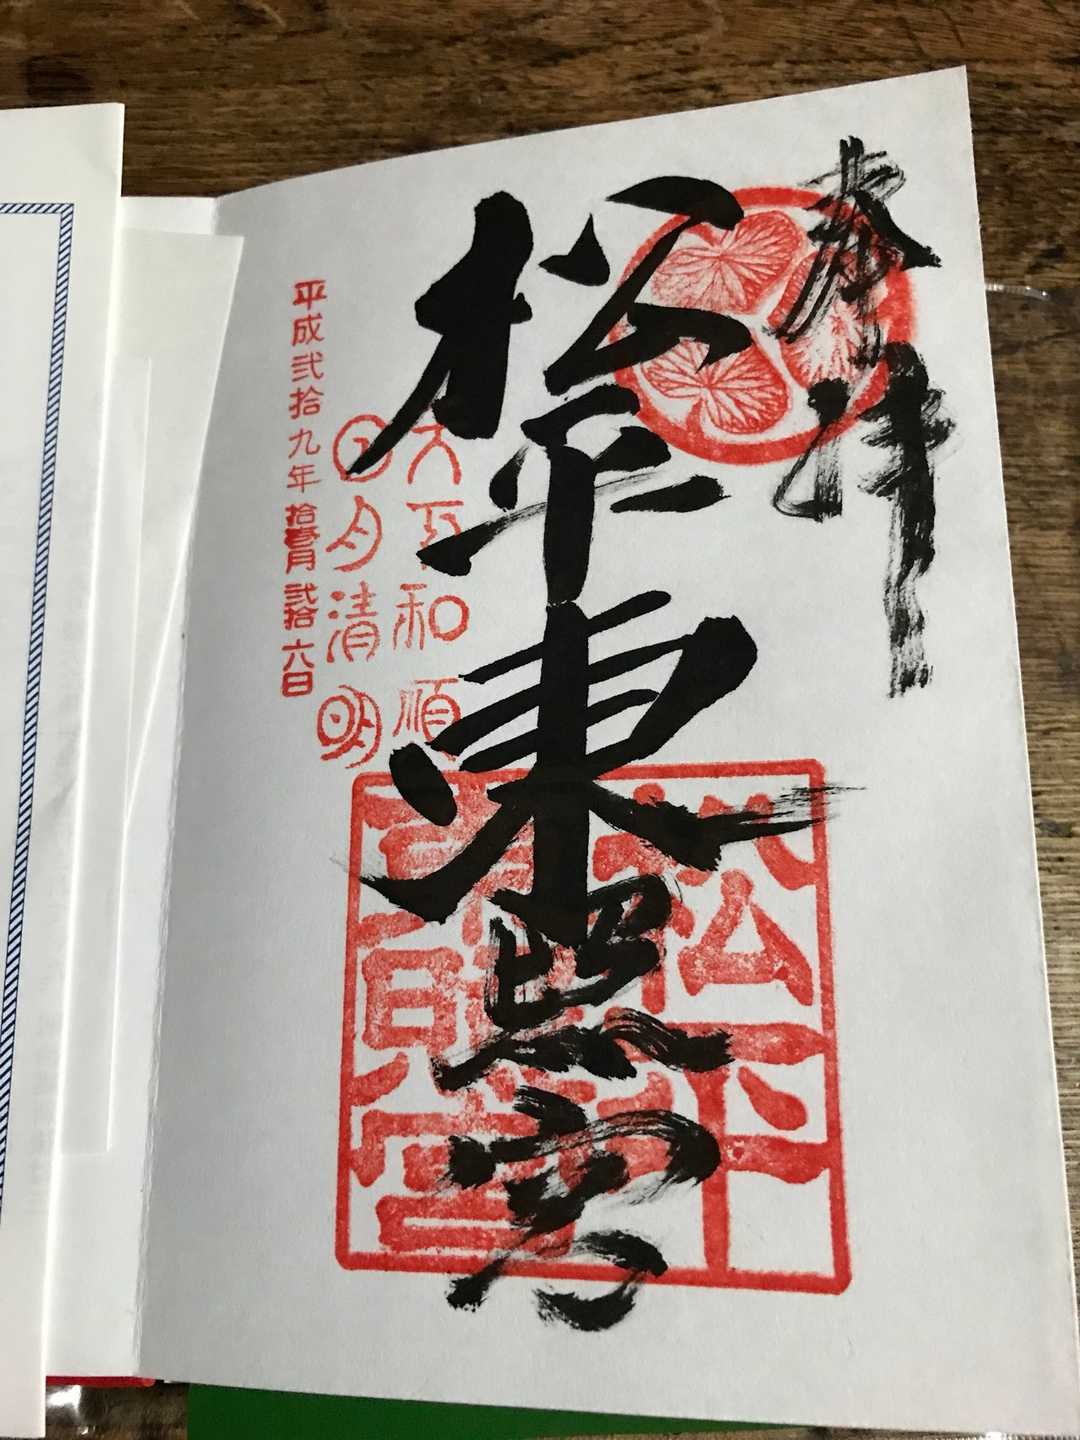 奉拝
松平東照宮
松平東照宮
天下和順
日月清明
平成弐拾九年拾壱月弐拾六日